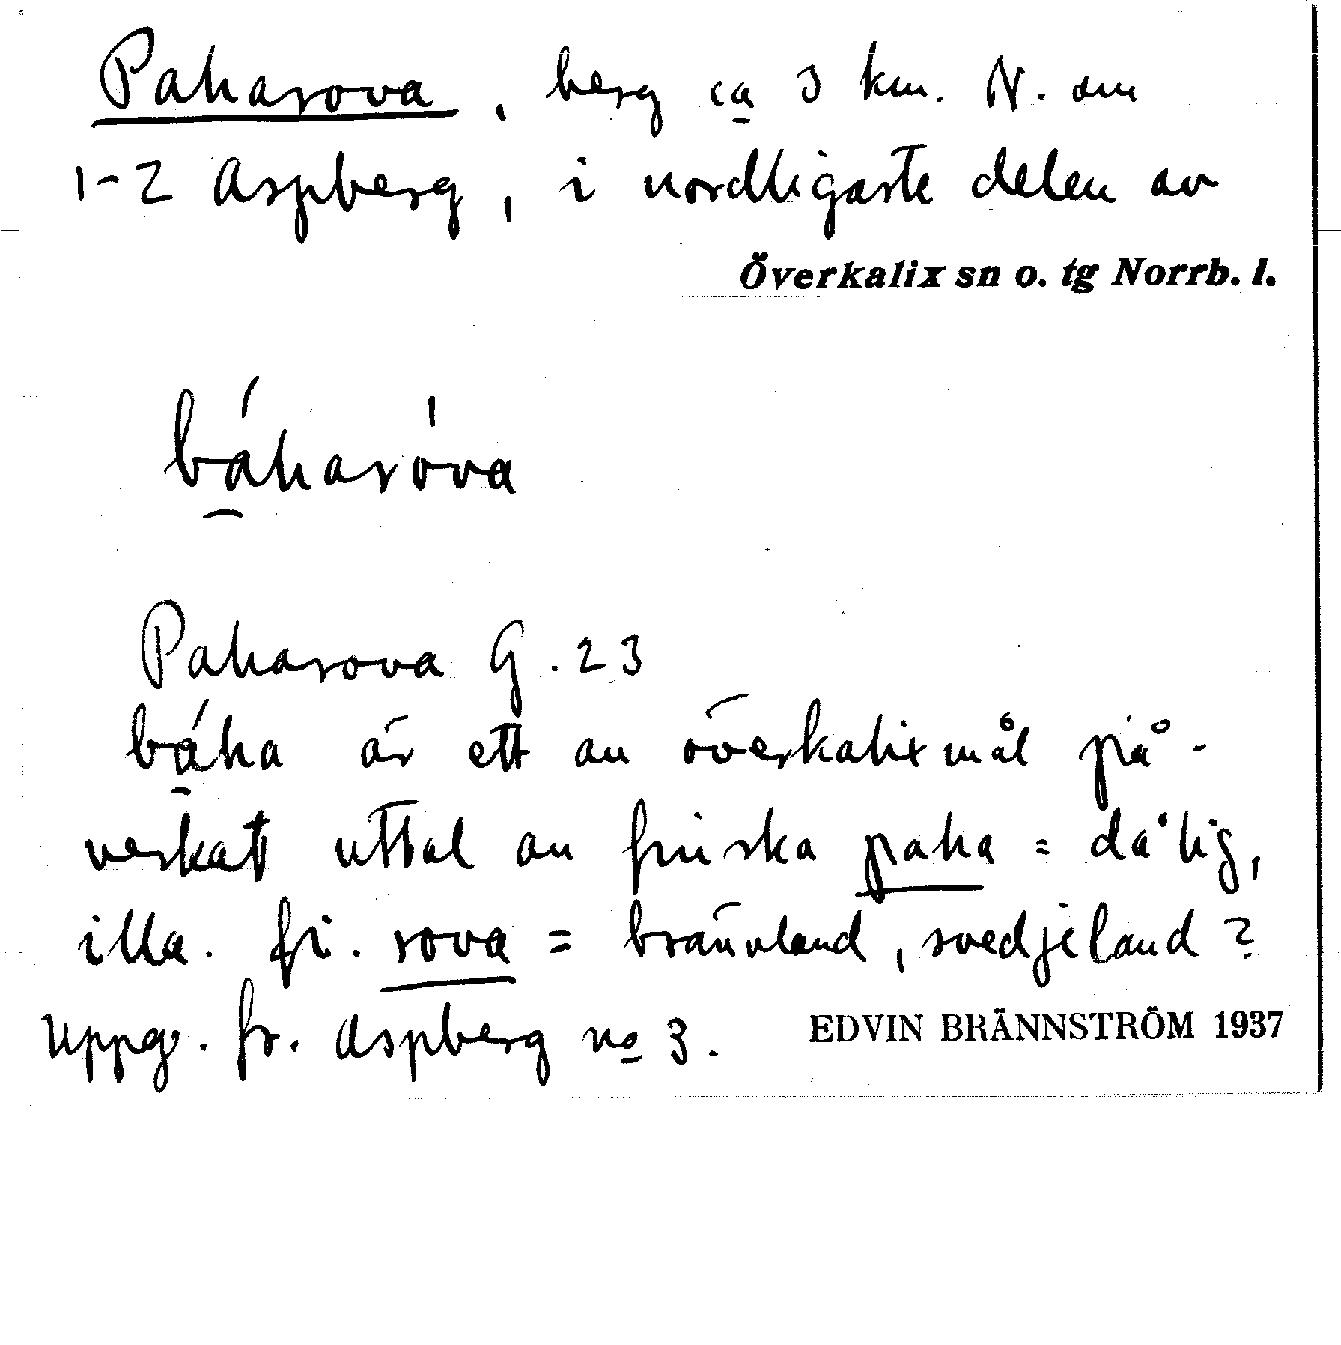 Paharova, berg ca 3 km. N. om
1-2 Aspberg, i nordligaste delen av
Överkalix sn o. tg Norrb. l.
báharóva
Paharova G. 23
báha är ett av överkalixmål på-
verkat uttal av finska paha = dålig,
illa. fi. rova = brännland, svedjeland?
Uppg. fr. Aspberg no 3.
EDVIN BRÄNNSTRÖM 1937